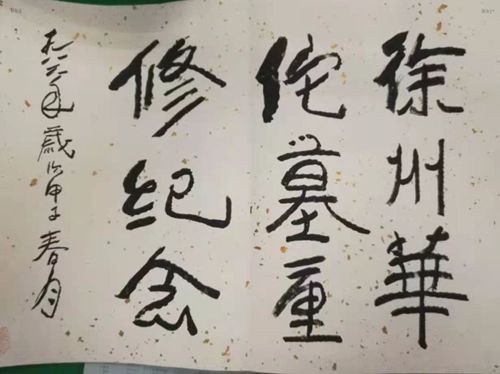 徐州華
佗墓重
修纪念
歲次甲子春月